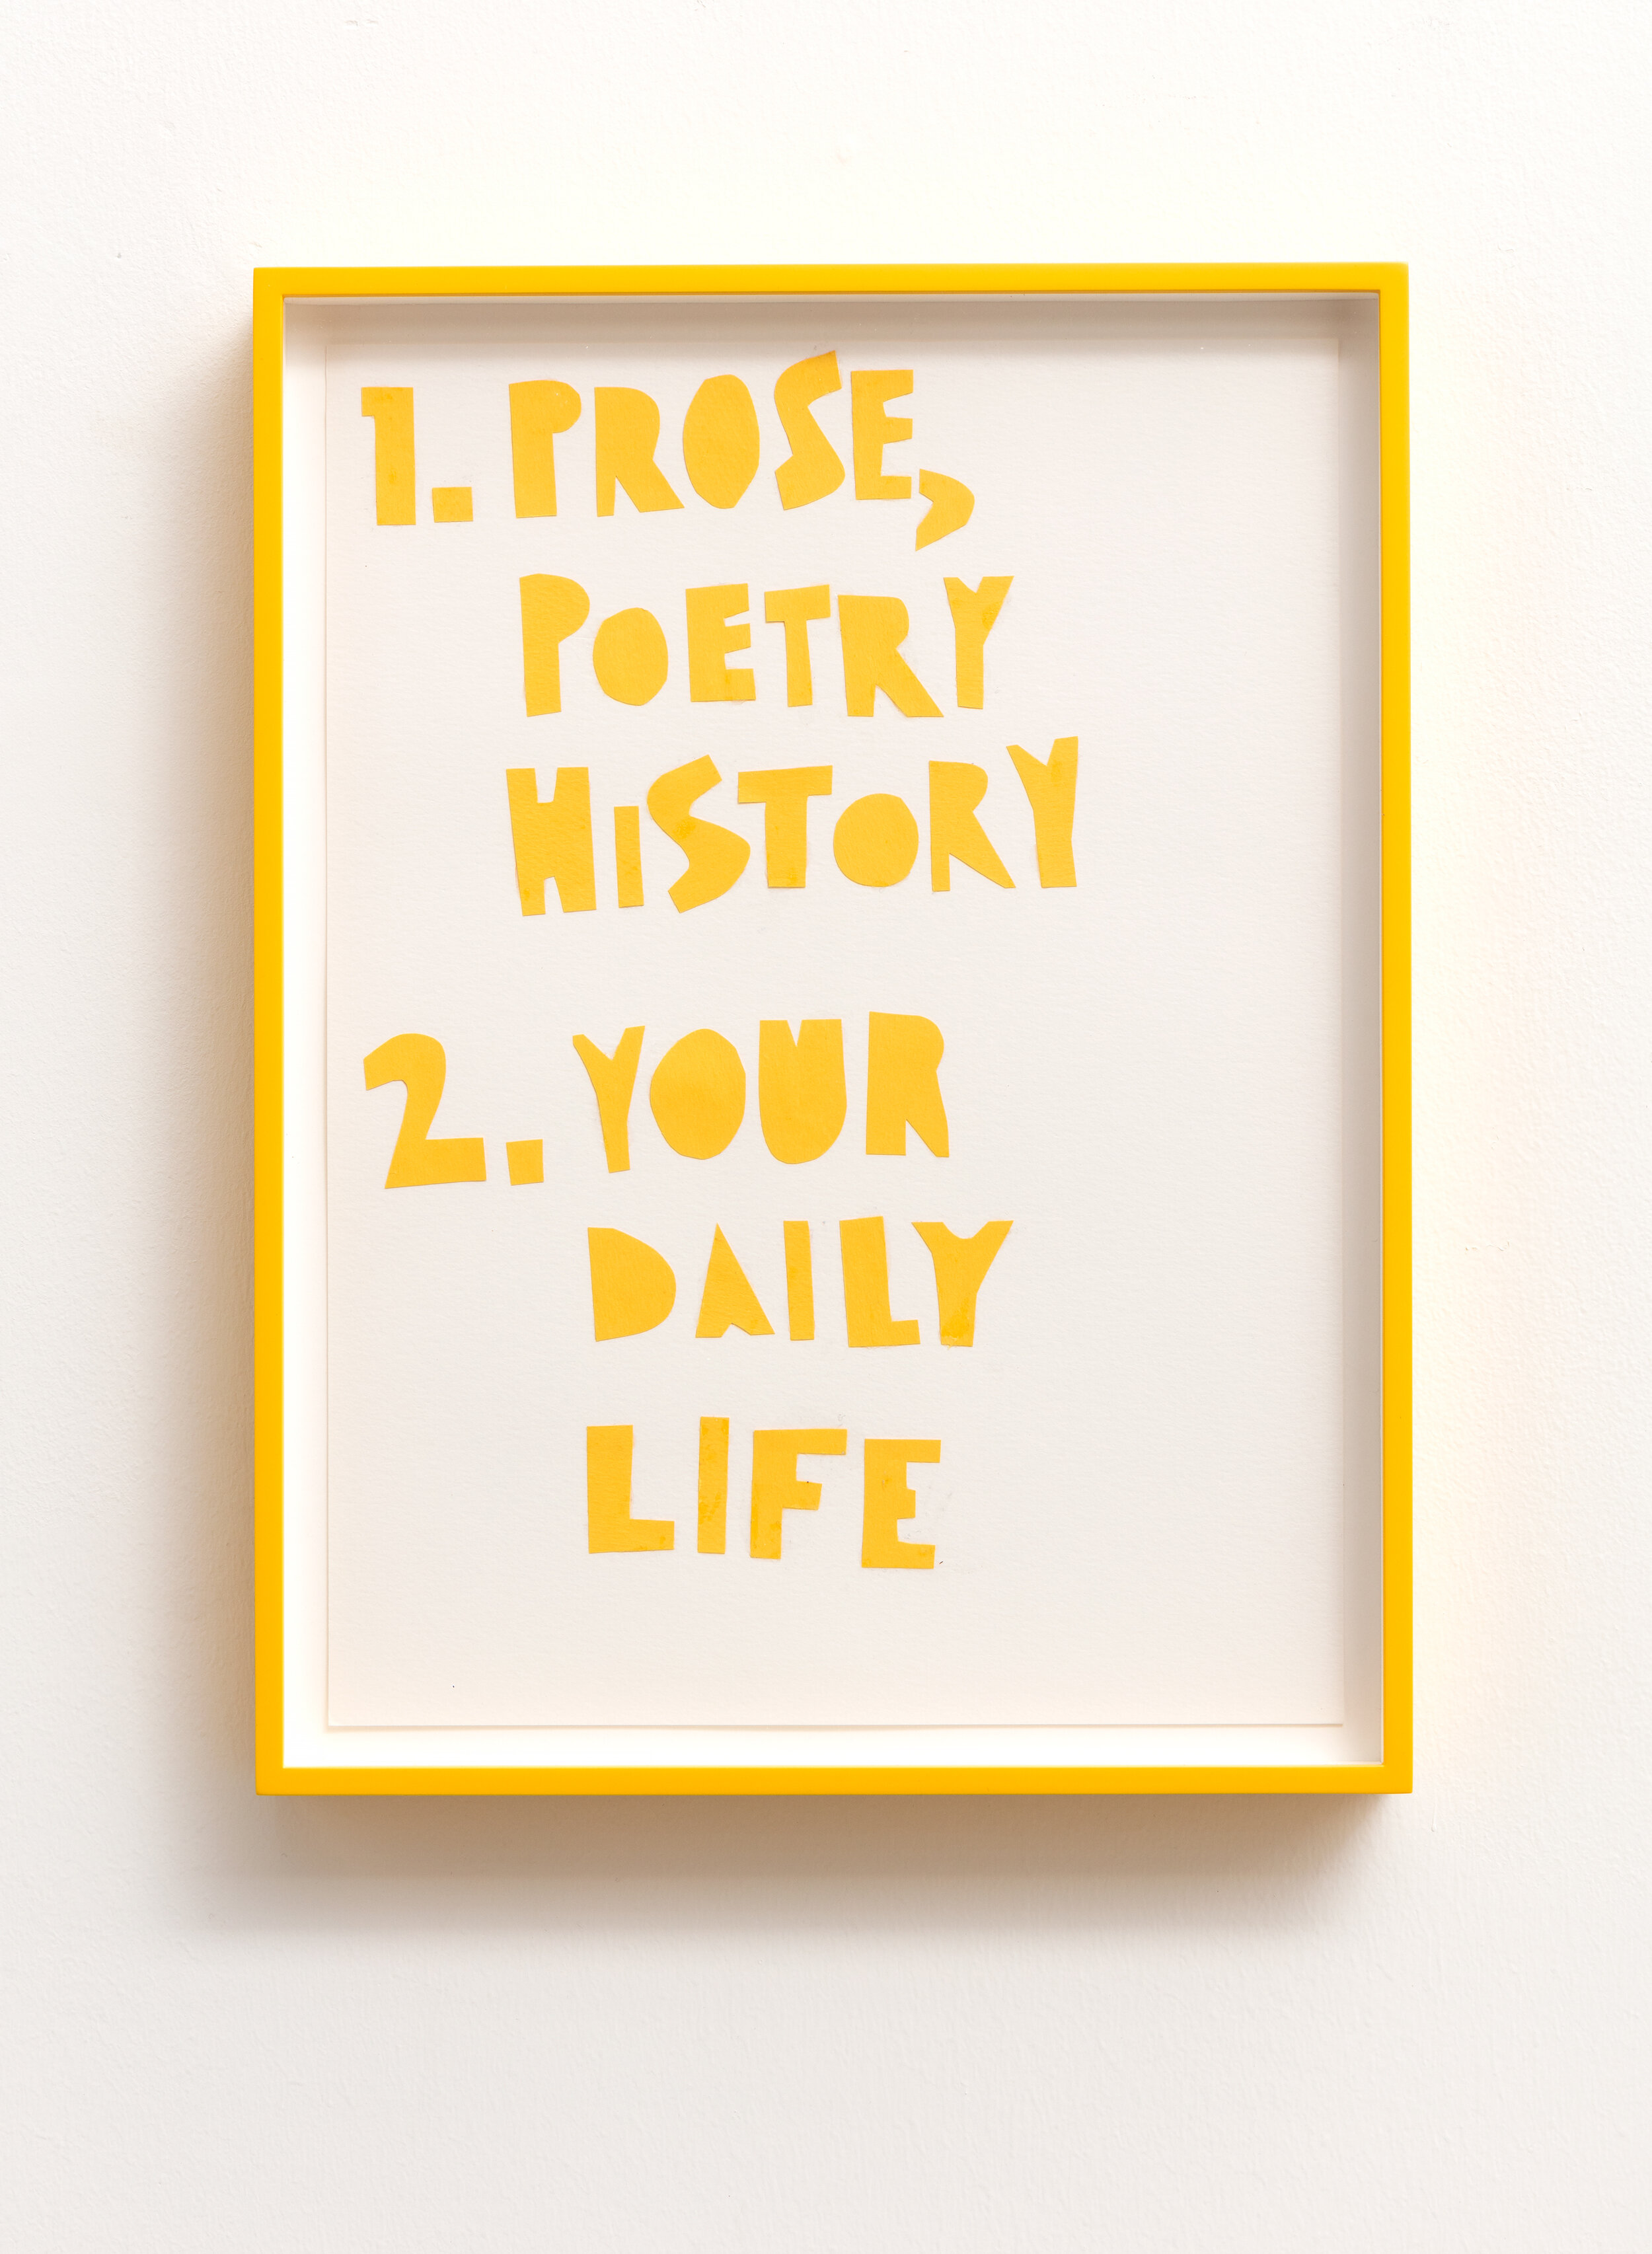 1. PROSE,
POETRY
HISTORY
2. YOUR
DAILY
LIFE